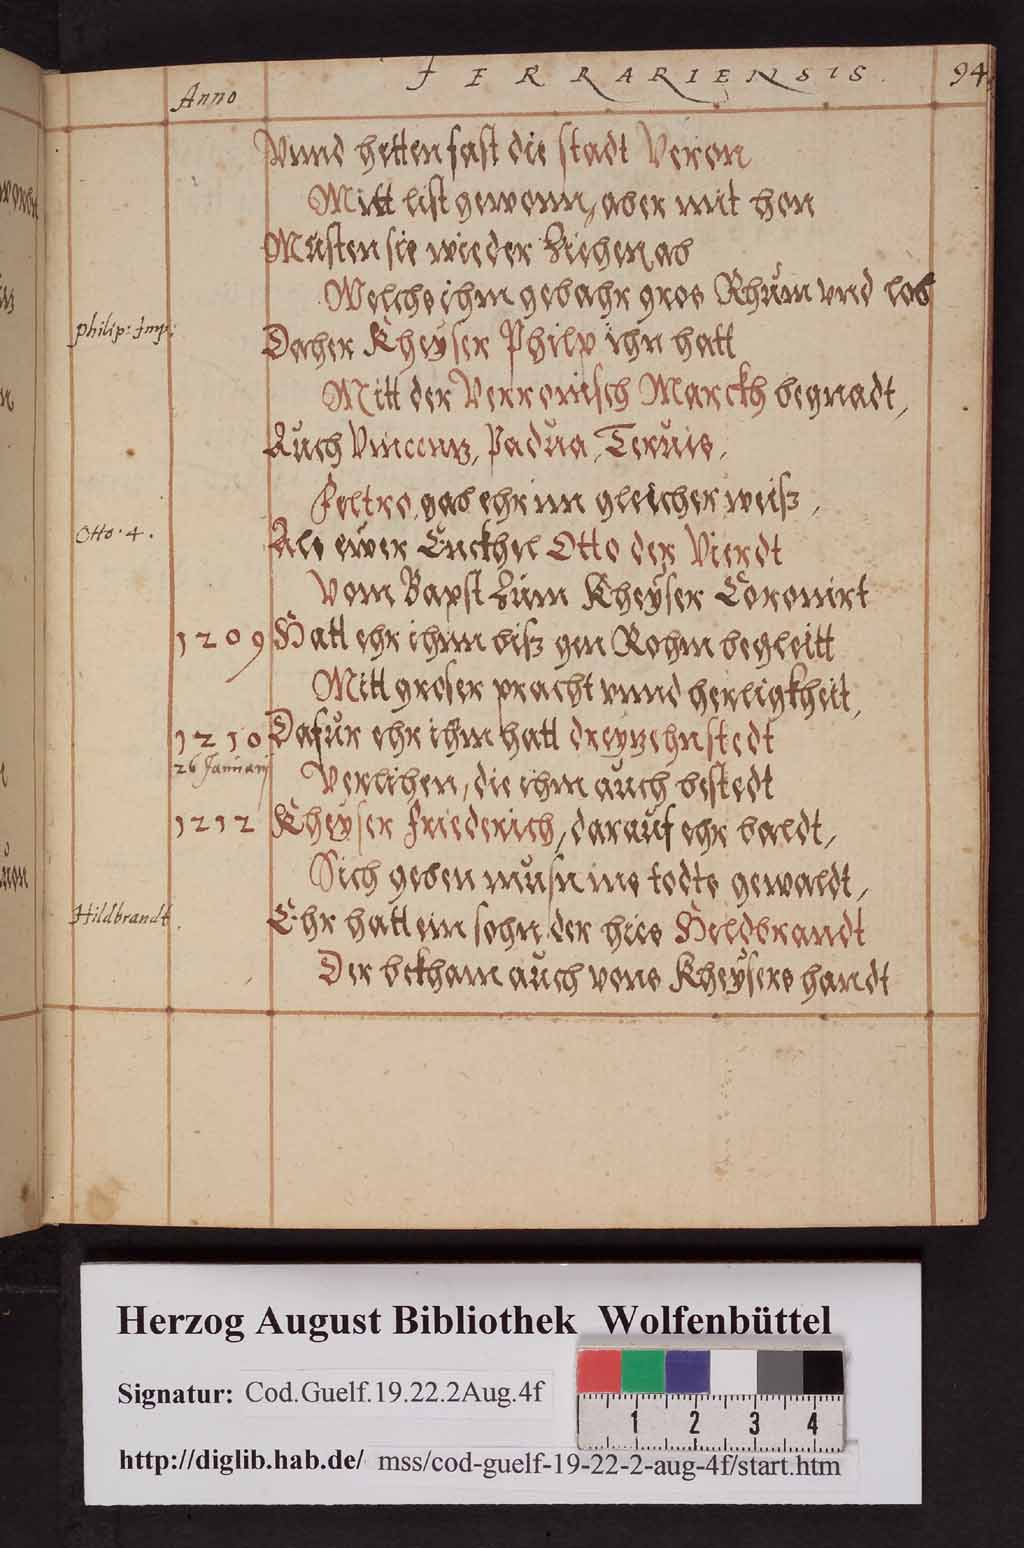 FERRARIENSIS.
94
Anno
Vnnd hetten fast die stadt Veron
Mitt list gewonn, aber mit hon
Musten sie wieder Ziehen ab
Welchs ihm gebahr gros Rhům vnd lob
philip: Imp:
Daher Kheÿser Philp ihn hatt
Mitt der Verronisch Marckh begnadt,
Auch Vincentz, Padua, Teruis,
Feltro, gab ehr inn gleicher weiß,
Otto 4.
Als ewer Enckhel Otto der Vierdt
Vom Bapst Zum Kheÿser Coronirt
1209 Hatt ehr ihnn biß gen Rohm begleitt
Mitt groser pracht vnnd herligkheit,
1210 Dafůr ehr ihm hatt dreyzehn stedt
26 Januarij
Verlihen, die ihm auch bestedt
1212 Kheÿser Friederich, darauf ehr baldt,
Sich geben musn ins todts gewaldt,
Hildbrandt.
Ehr hatt ein sohn der hies Heldbrandt
Der bekham auch vons Kheÿsers handt
Herzog August Bibliothek Wolfenbüttel
Signatur: Cod.Guelf.19.22.2Aug.4f
1 2 3 4
http://diglib.hab.de/ mss/cod-guelf-19-22-2-aug-4f/start.htm